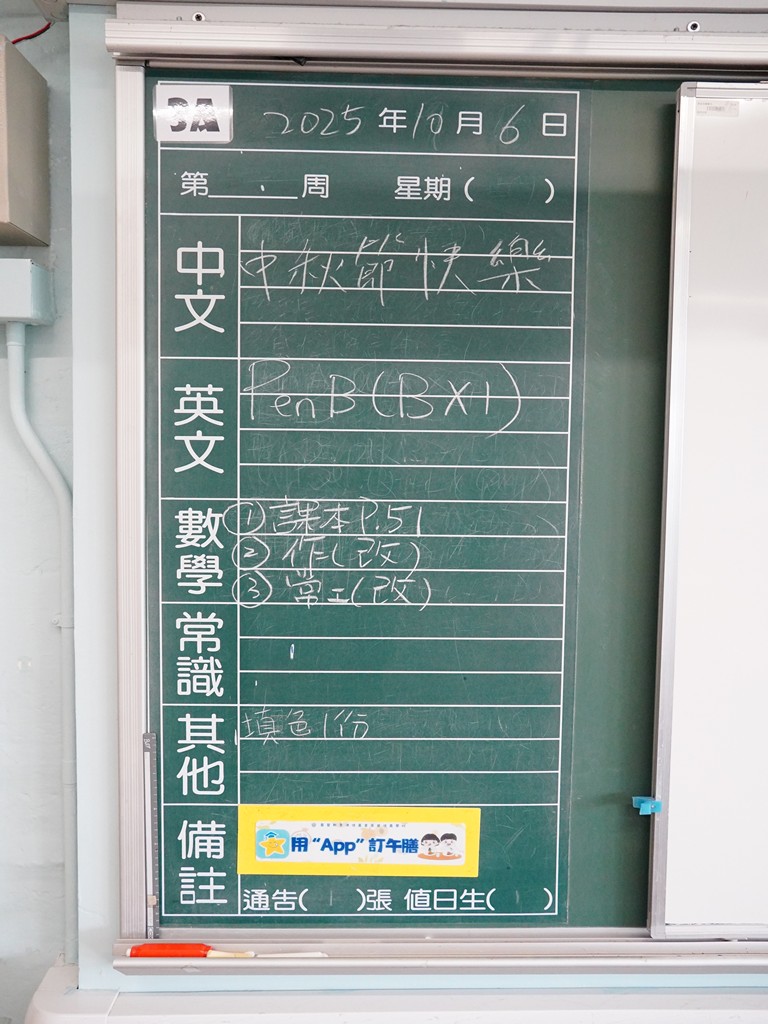 3A
2025年10月6日
第 周 星期( )
中文
中秋節快樂
英文
Pen B (B×1)
數學
① 課本 P.51
② 作(改)
③ 常工(改)
常識
其他
填色1份
備註
用“App”訂午膳
通告( )張 值日生( )